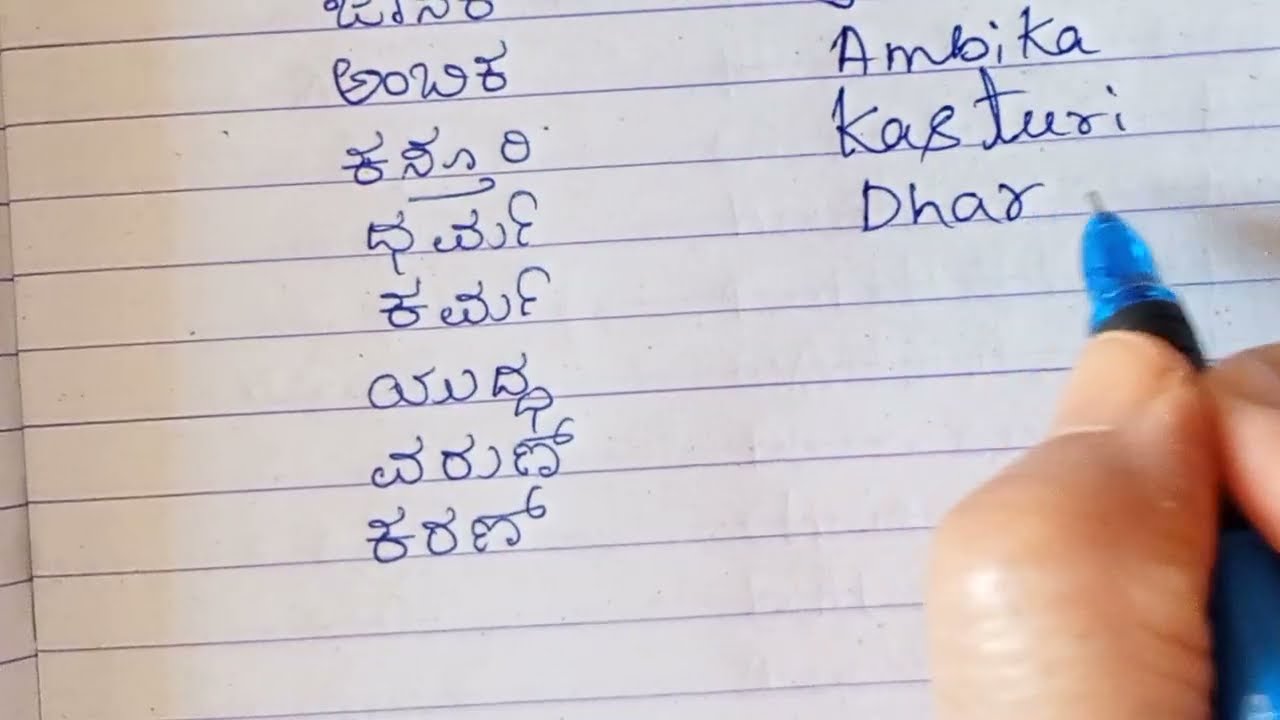 ಜಾನಕಿ
ಅಂಬಿಕ Ambika
ಕಸ್ತೂರಿ Kasturi
ಧರ್ಮ Dhar
ಕರ್ಮ
ಯುದ್ಧ
ವರುಣ್
ಕರಣ್